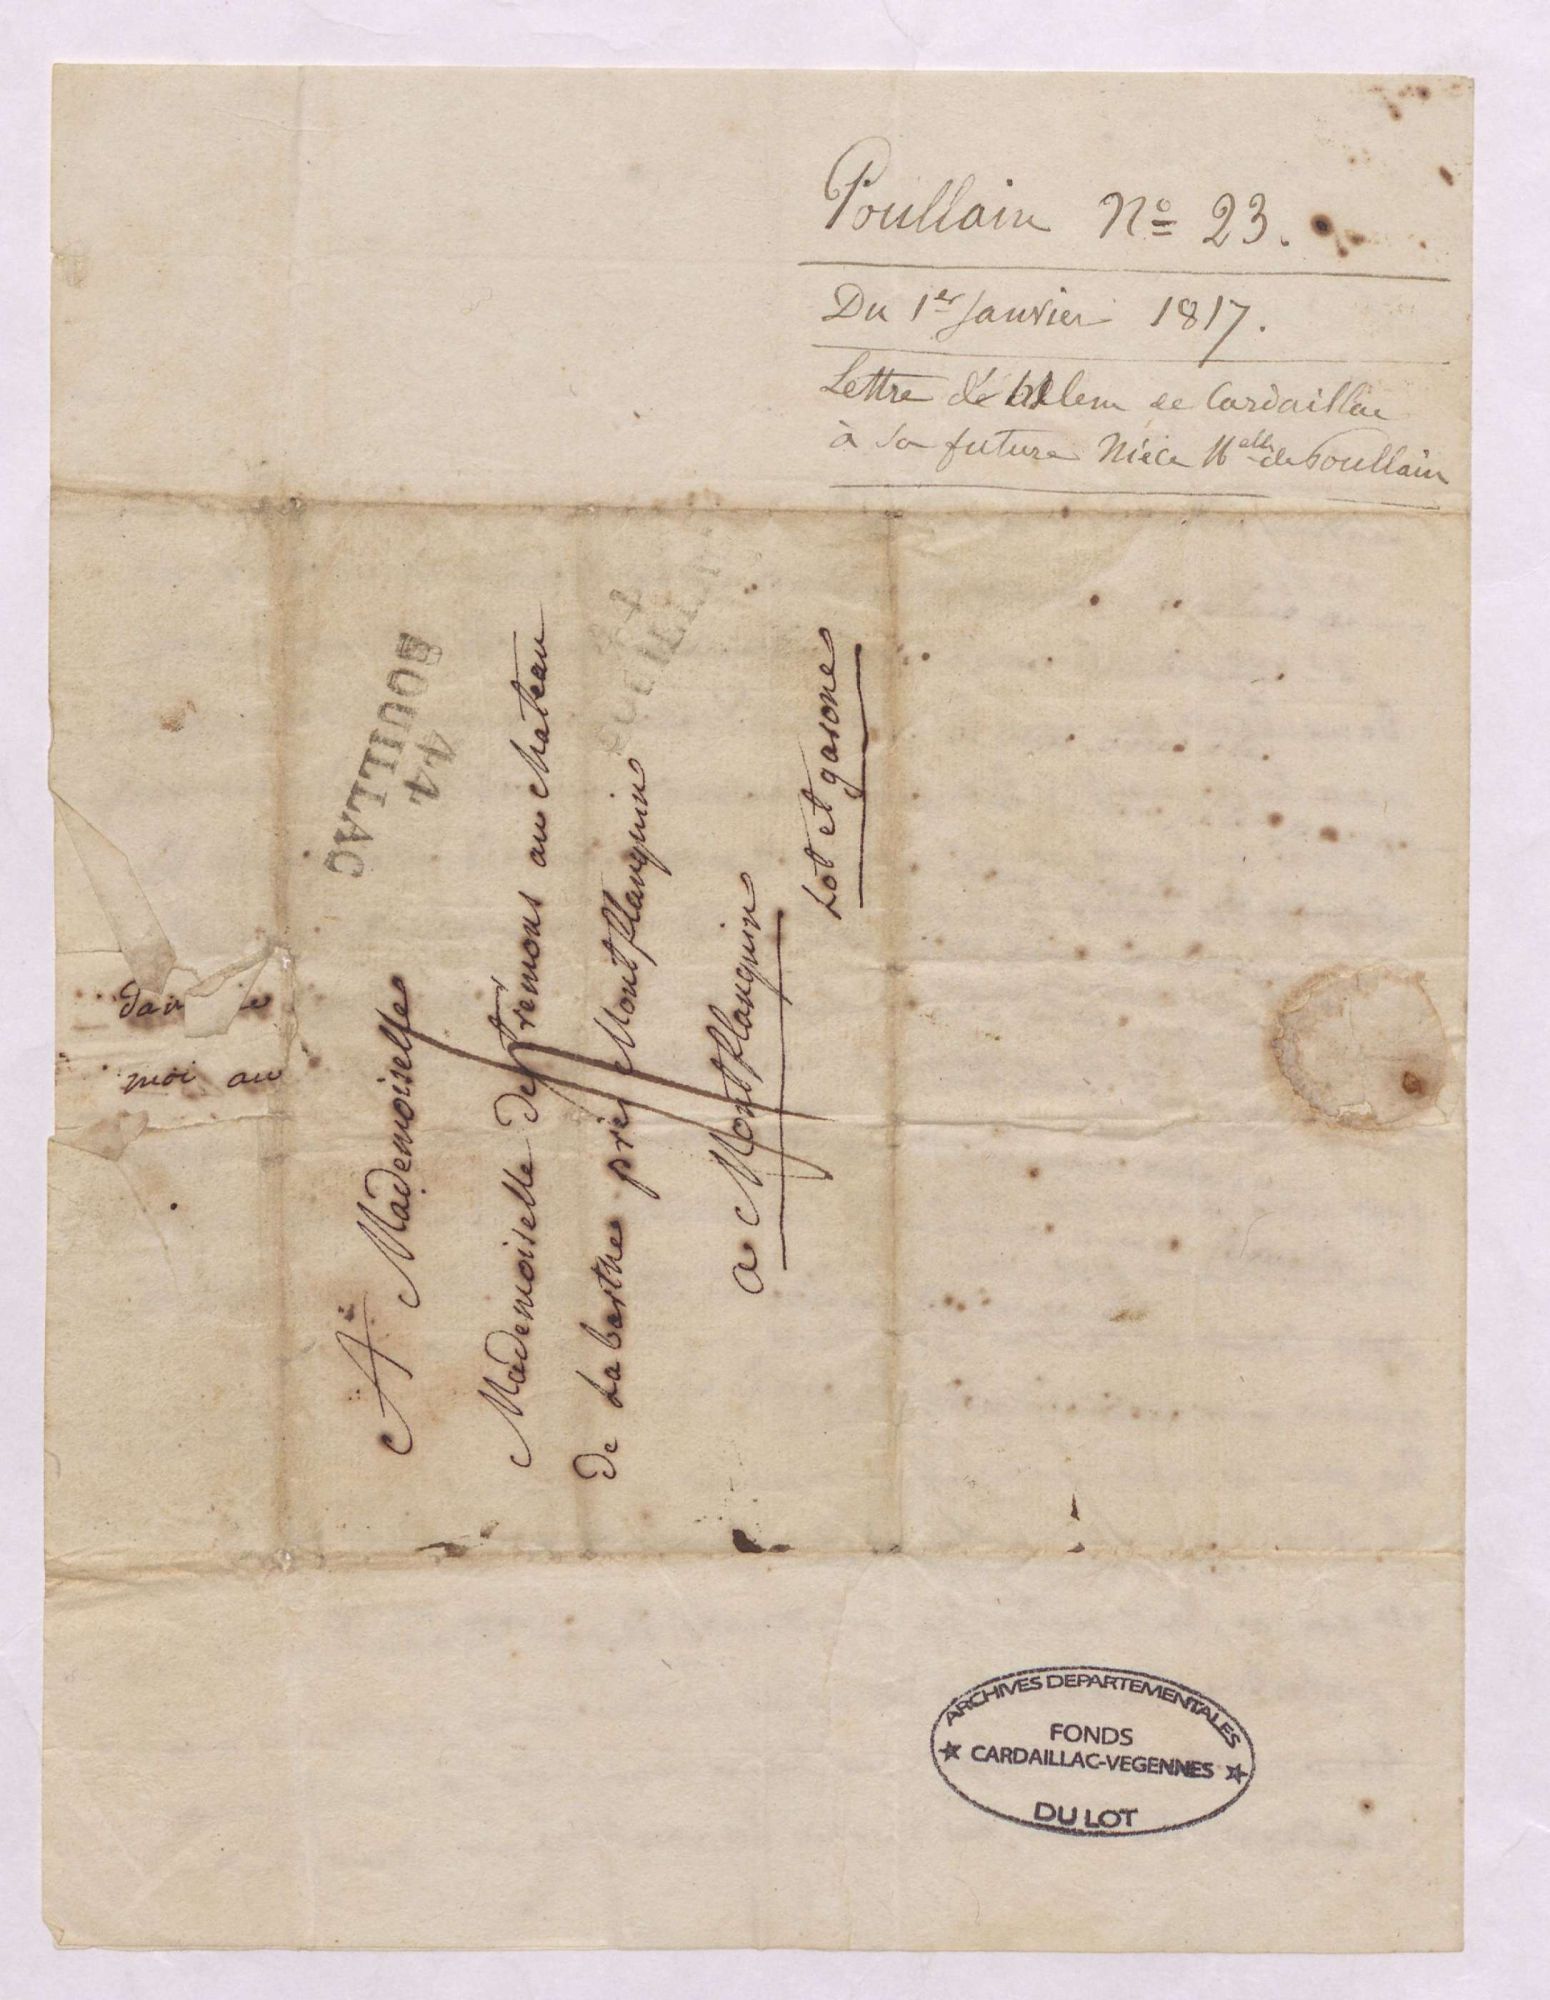 Poullain No 23.
Du 1er Janvier 1817.
Lettre de de Cardaillac
à sa future Niéce Melle de Poullain
44
SOUILLAC
A Mademoiselle
Mademoiselle de tremons au chateau
de Labarthe près Montflanquin
a Montflanquin
Lot et garone
moi au
ARCHIVES DEPARTEMENTALES
FONDS
CARDAILLAC-VEGENNES
DU LOT